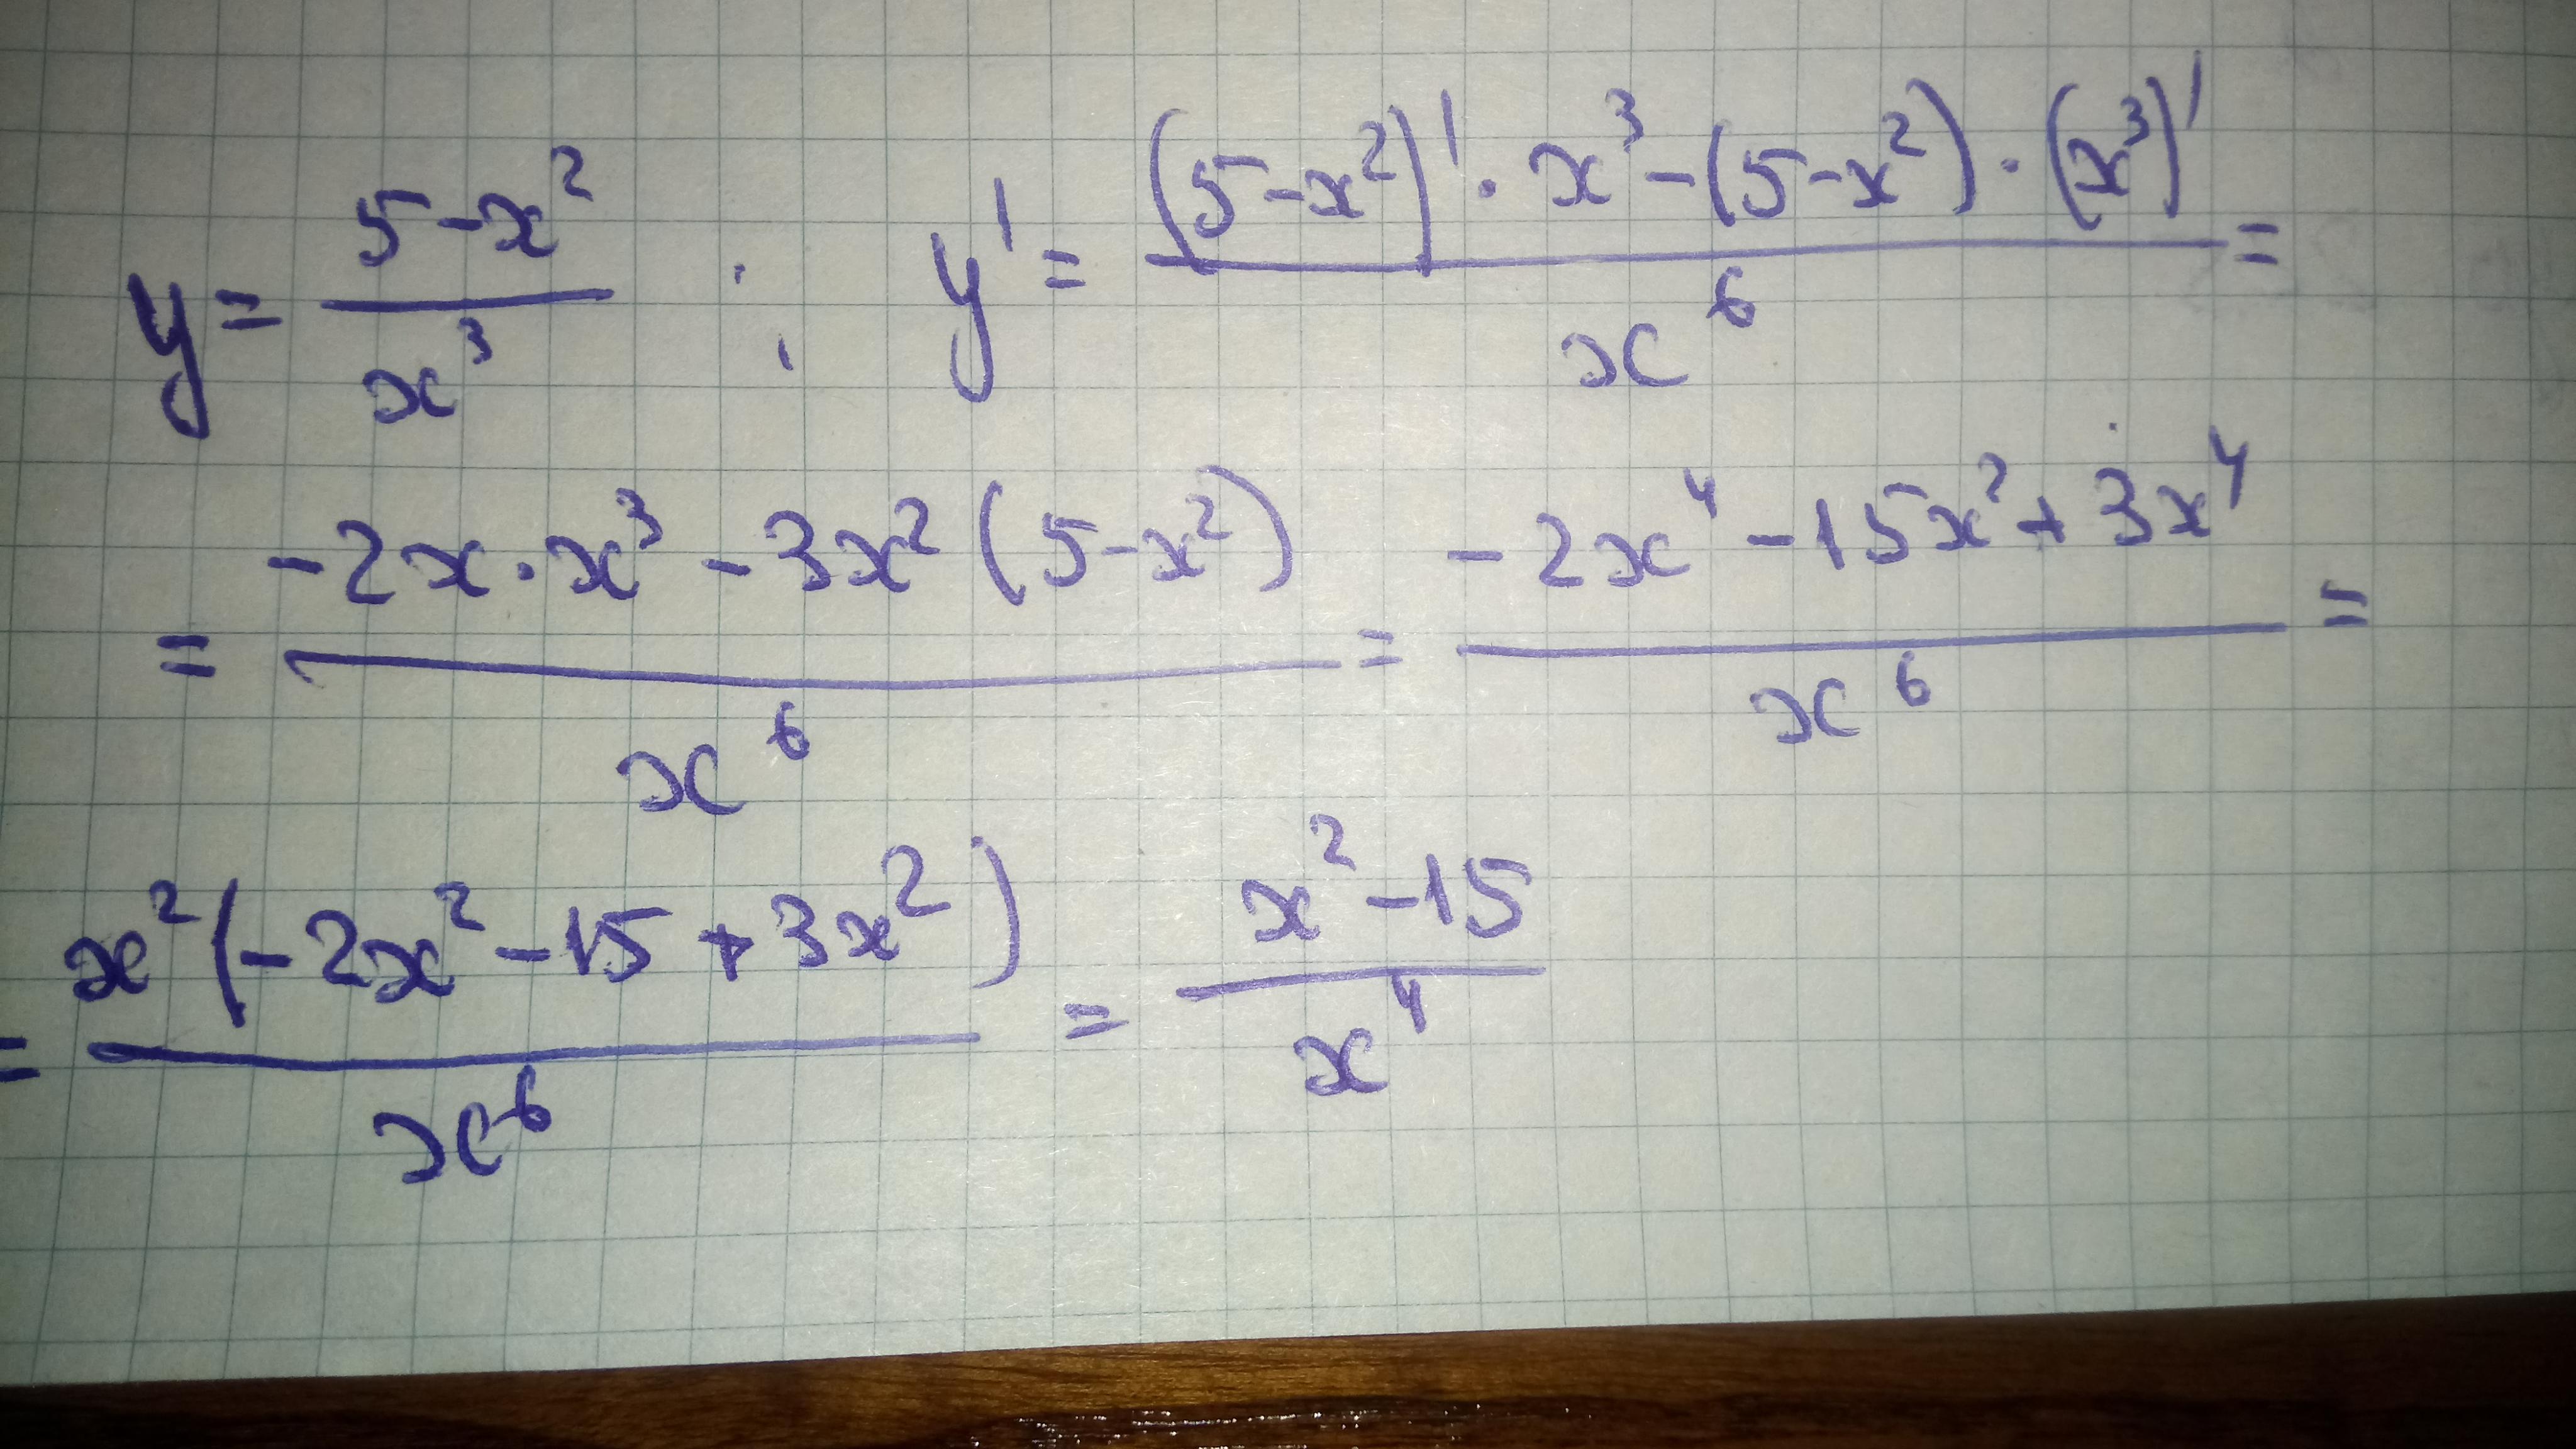 y = (5-x²)/x³ ; y' = ((5-x²)'·x³-(5-x²)·(x³)')/x⁶ =
= (-2x·x³-3x²(5-x²))/x⁶ = (-2x⁴-15x²+3x⁴)/x⁶ =
= x²(-2x²-15+3x²)/x⁶ = (x²-15)/x⁴